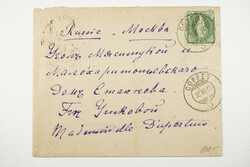 Russie. Москва
Уголъ Мясницкой и
Малохаритоньевскаго
Домъ Стахеева.
Г-жѣ Ушковой
Mademoiselle Duperthuis